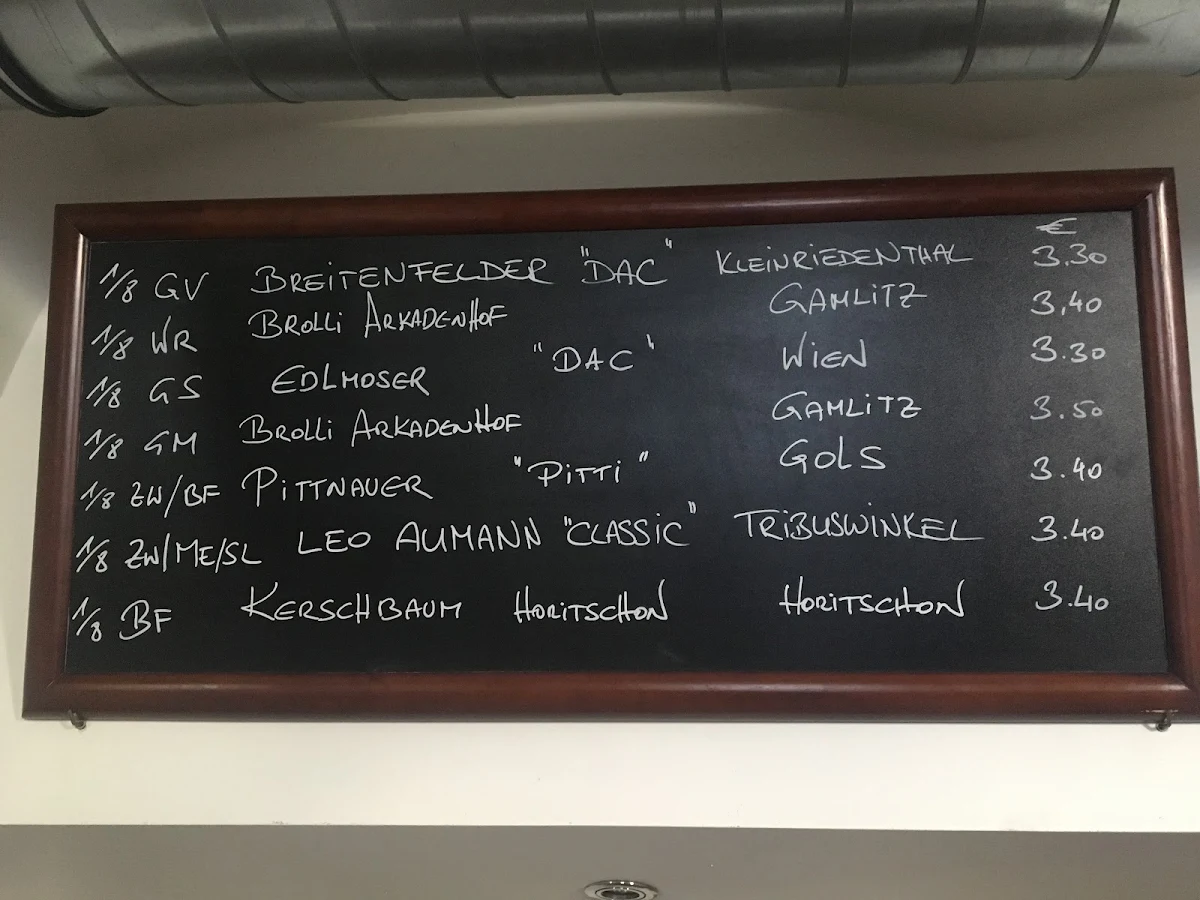 €
1/8 GV BREITENFELDER "DAC" KLEINRIEDENTHAL 3.30
1/8 WR BROLLI ARKADENHOF GAMLITZ 3,40
1/8 GS EDLMOSER "DAC" WIEN 3.30
1/8 GM BROLLI ARKADENHOF GAMLITZ 3.50
1/8 ZW/BF PITTNAUER "PITTI" GOLS 3.40
1/8 ZW/ME/SL LEO AUMANN "CLASSIC" TRIBUSWINKEL 3.40
1/8 BF KERSCHBAUM HORITSCHON HORITSCHON 3.40